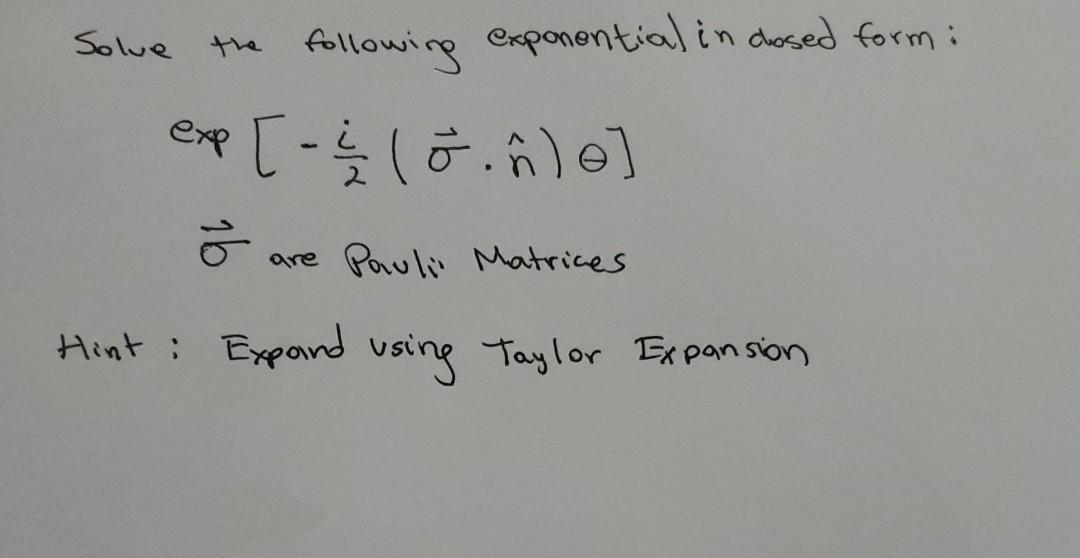 Solve the following exponential in closed form :
exp [ - i/2 ( σ⃗ . n̂ ) θ ]
σ⃗ are Pauli Matrices
Hint : Expand using Taylor Expansion